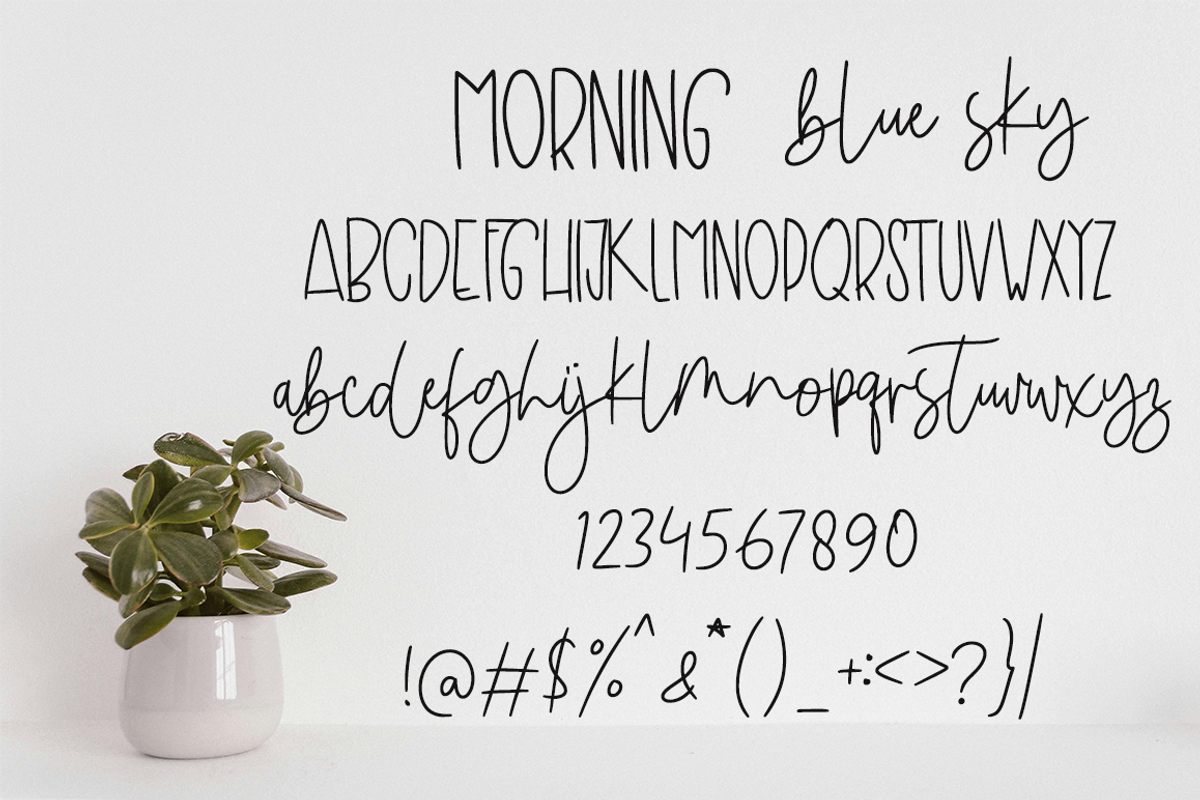 MORNING blue sky
ABCDEFGHIJKLMNOPQRSTUVWXYZ
abcdefghijklmnopqrstuvwxyz
1234567890
!@#$%^&*()_+:<>?}|